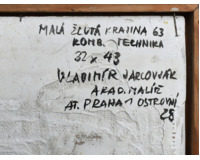 MALÁ ŽLUTÁ KRAJINA 63
KOMB. TECHNIKA
32 x 43
VLADIMÍR JARCOVJÁK
AKAD. MALÍŘ
AT. PRAHA 1 OSTROVNÍ
28